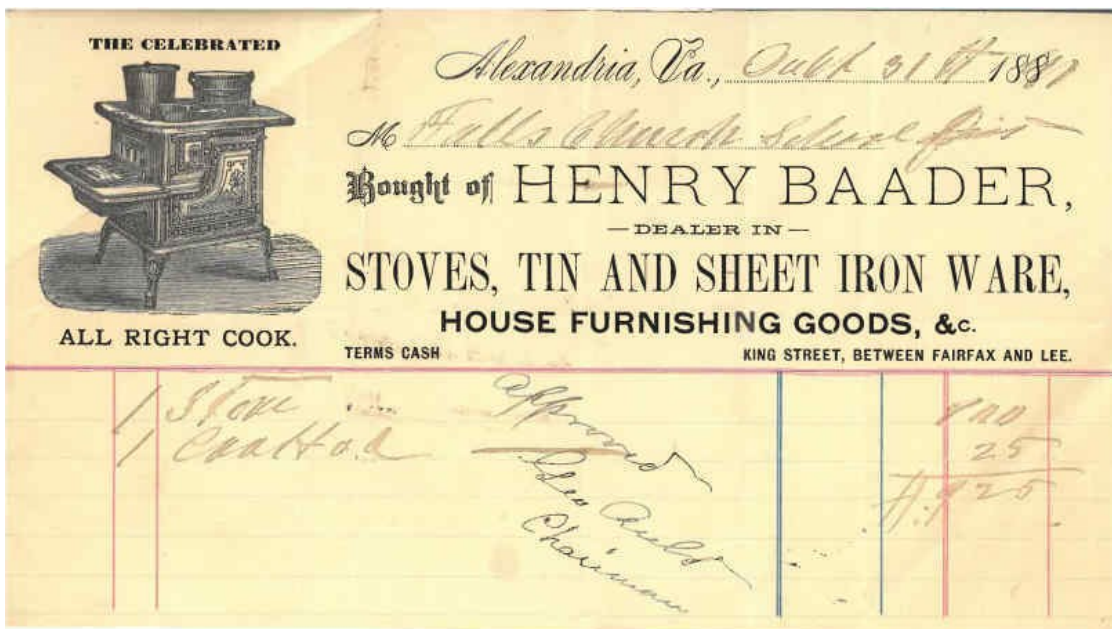 THE CELEBRATED
ALL RIGHT COOK.
Alexandria, Va., 31st 188
M Falls Church School
Bought of HENRY BAADER,
— DEALER IN —
STOVES, TIN AND SHEET IRON WARE,
HOUSE FURNISHING GOODS, &c.
TERMS CASH KING STREET, BETWEEN FAIRFAX AND LEE.
1 Stove
1 Coal Hod 25
25
Approved
Geo Auld
Chairman